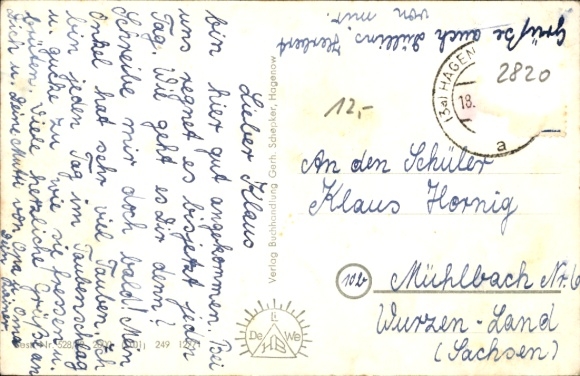 Lieber Klaus
bin hier gut angekommen. Bei
uns regnet es bisjetzt jeden
Tag. Wie geht es Dir denn?
Schreibe mir doch bald! Mein
Onkel hat sehr viel Tauben. Ich
bin jeden Tag im Taubenschlag
u. gucke zu wie sie fressen u.
brüten. Viele herzliche Grüße an
Dich u. Deine Mutti von Opa u. Oma
Dein Rainer
Grüße auch Herbert
von mir.
Verlag Buchhandlung Gerh. Schepker, Hagenow
(3a) HAGEN
18.
a
2820
12,-
An den Schüler
Klaus Hornig
10b
Mühlbach Nr. 6
Wurzen-Land
(Sachsen)
De We
249